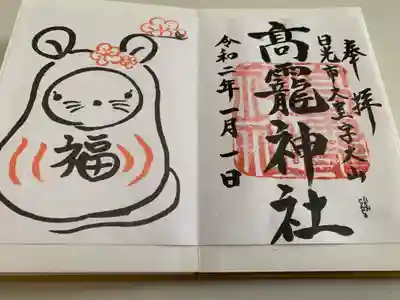 奉拝
日光市大室字大山
高龗神社
令和二年一月一日
福